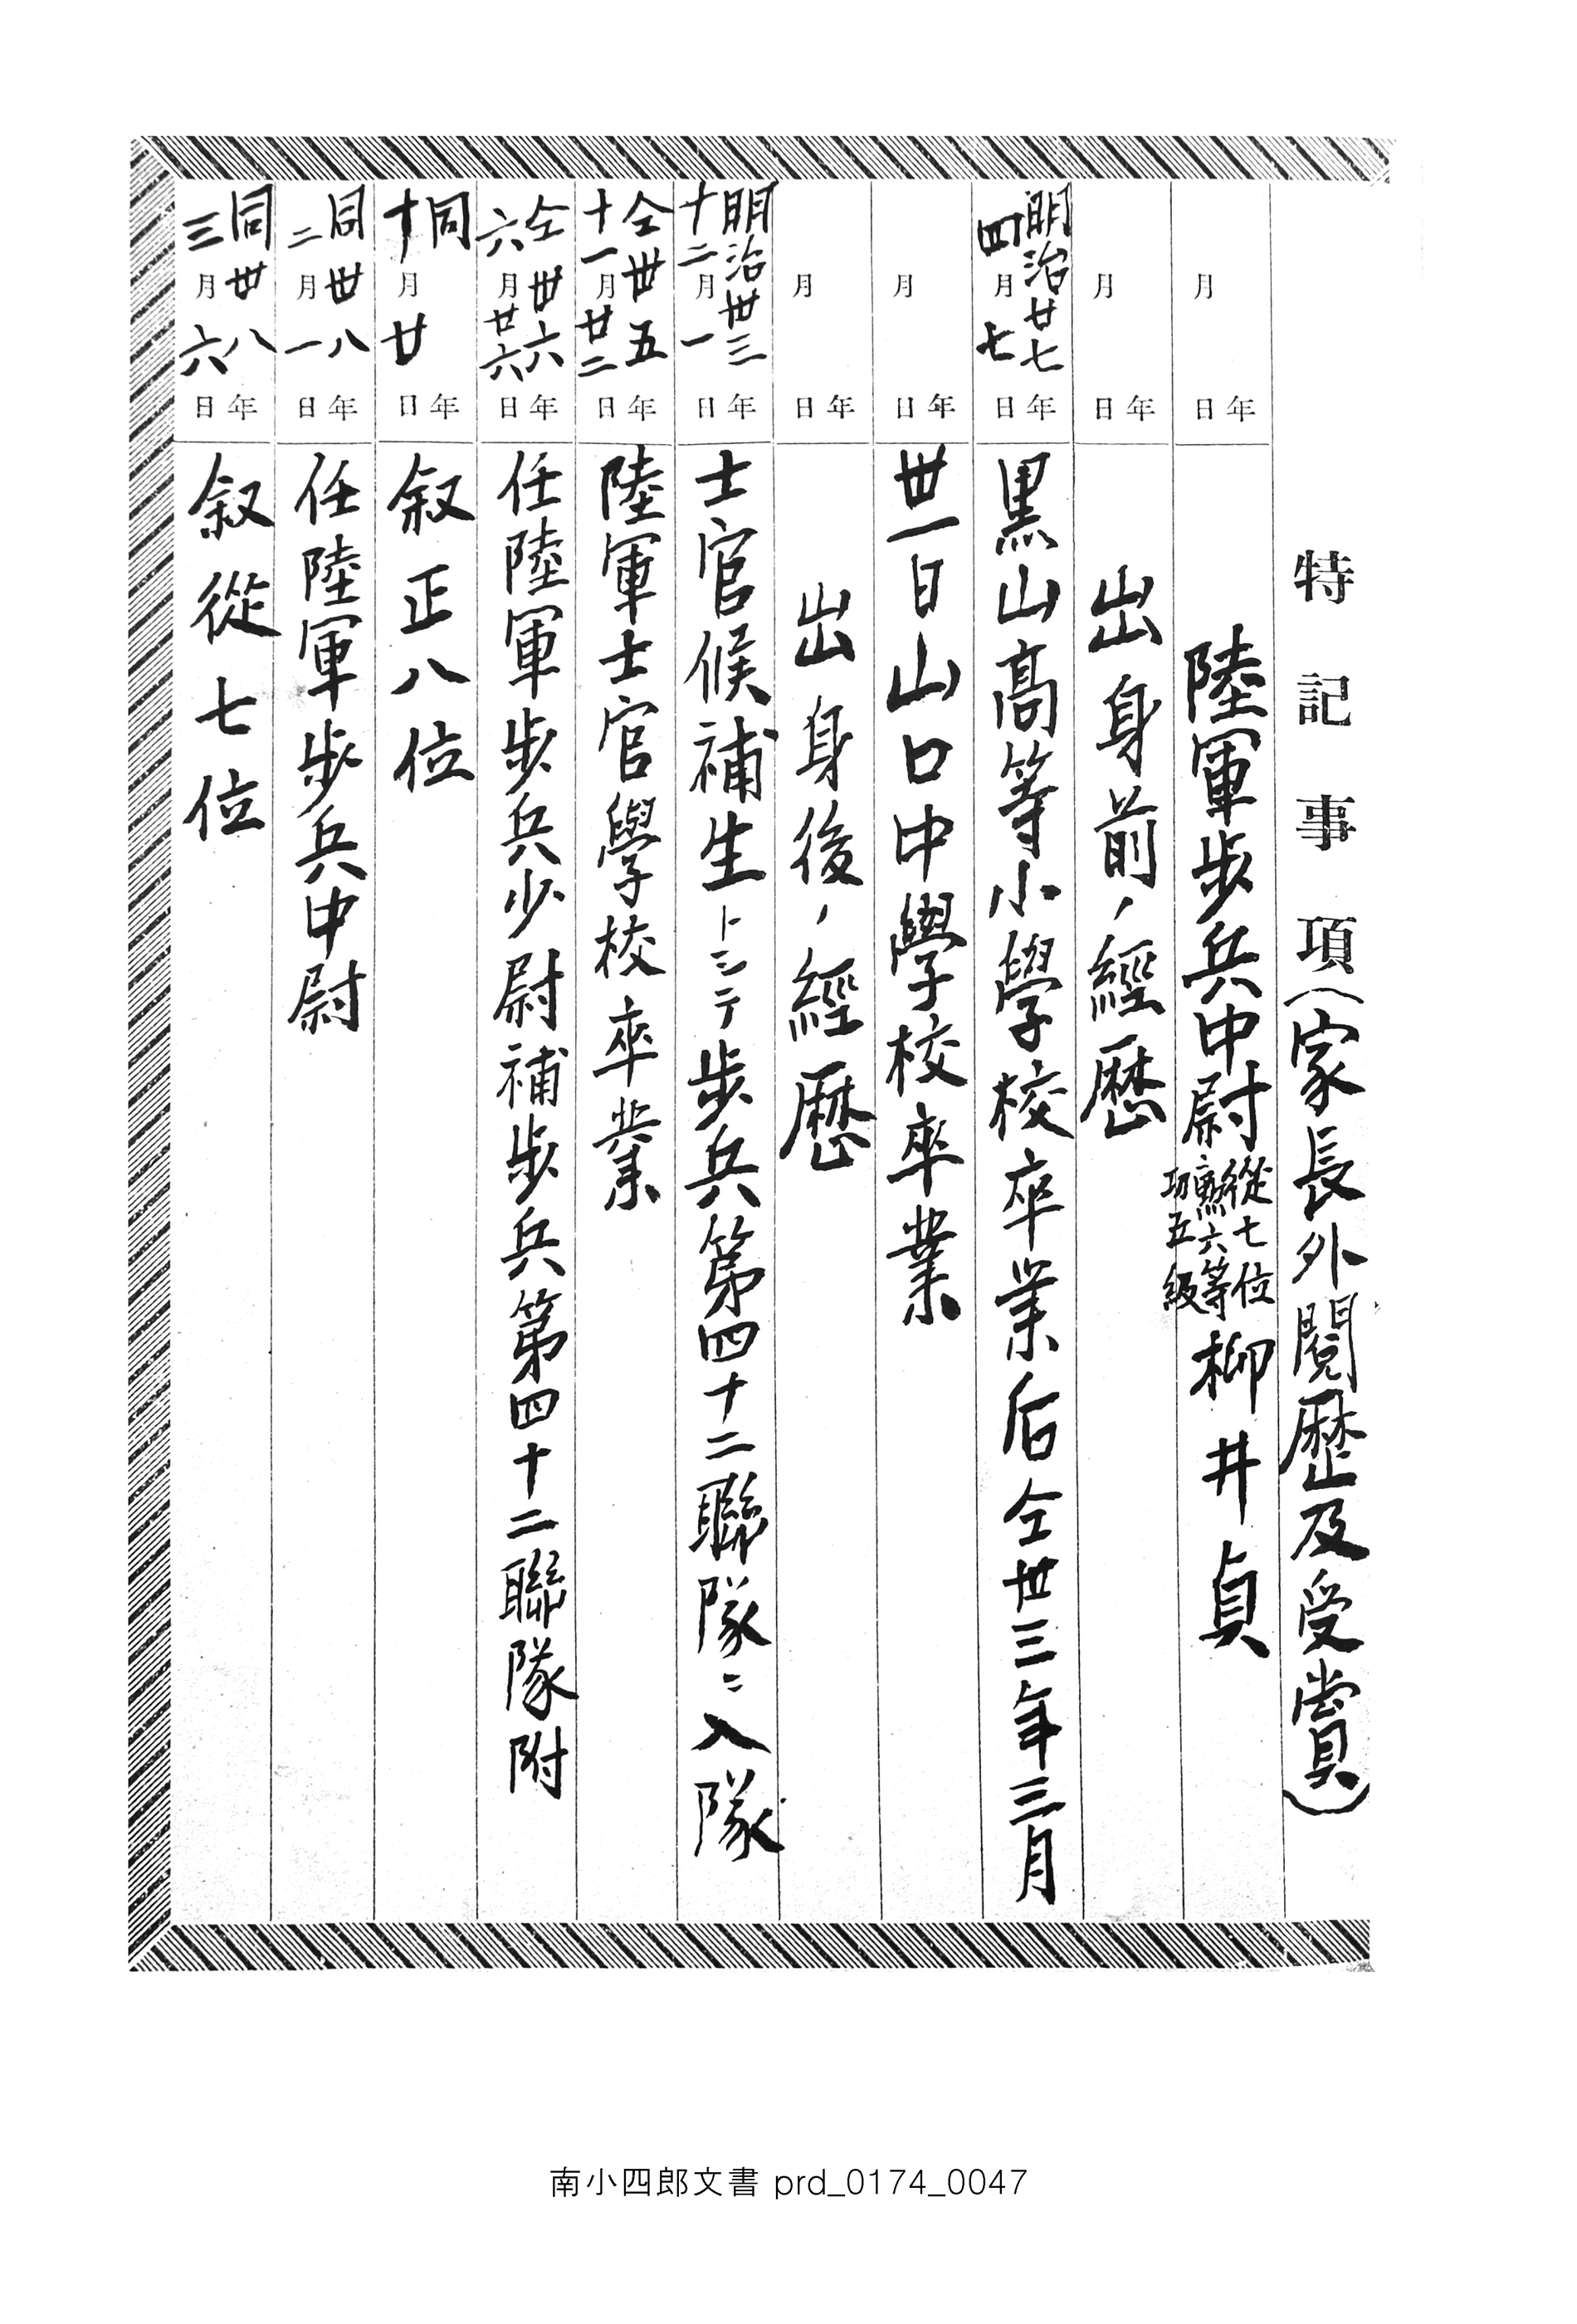 特記事項(家長外閲歴及受賞)
年月日 陸軍歩兵中尉 從七位 勲六等 功五級 柳井貞
年月日 出身前ノ經歴
明治廿七年四月七日 黒山高等小學校卒業后仝丗三年三月
年月日 丗一日山口中學校卒業
年月日 出身後ノ經歴
明治丗三年十二月一日 士官候補生トシテ歩兵第四十二聯隊ニ入隊
仝丗五年十一月廿二日 陸軍士官學校卒業
仝丗六年六月廿六日 任陸軍歩兵少尉補歩兵第四十二聯隊附
同年十月廿日 叙正八位
同丗八年二月一日 任陸軍歩兵中尉
同丗八年三月六日 叙從七位
南小四郎文書 prd_0174_0047